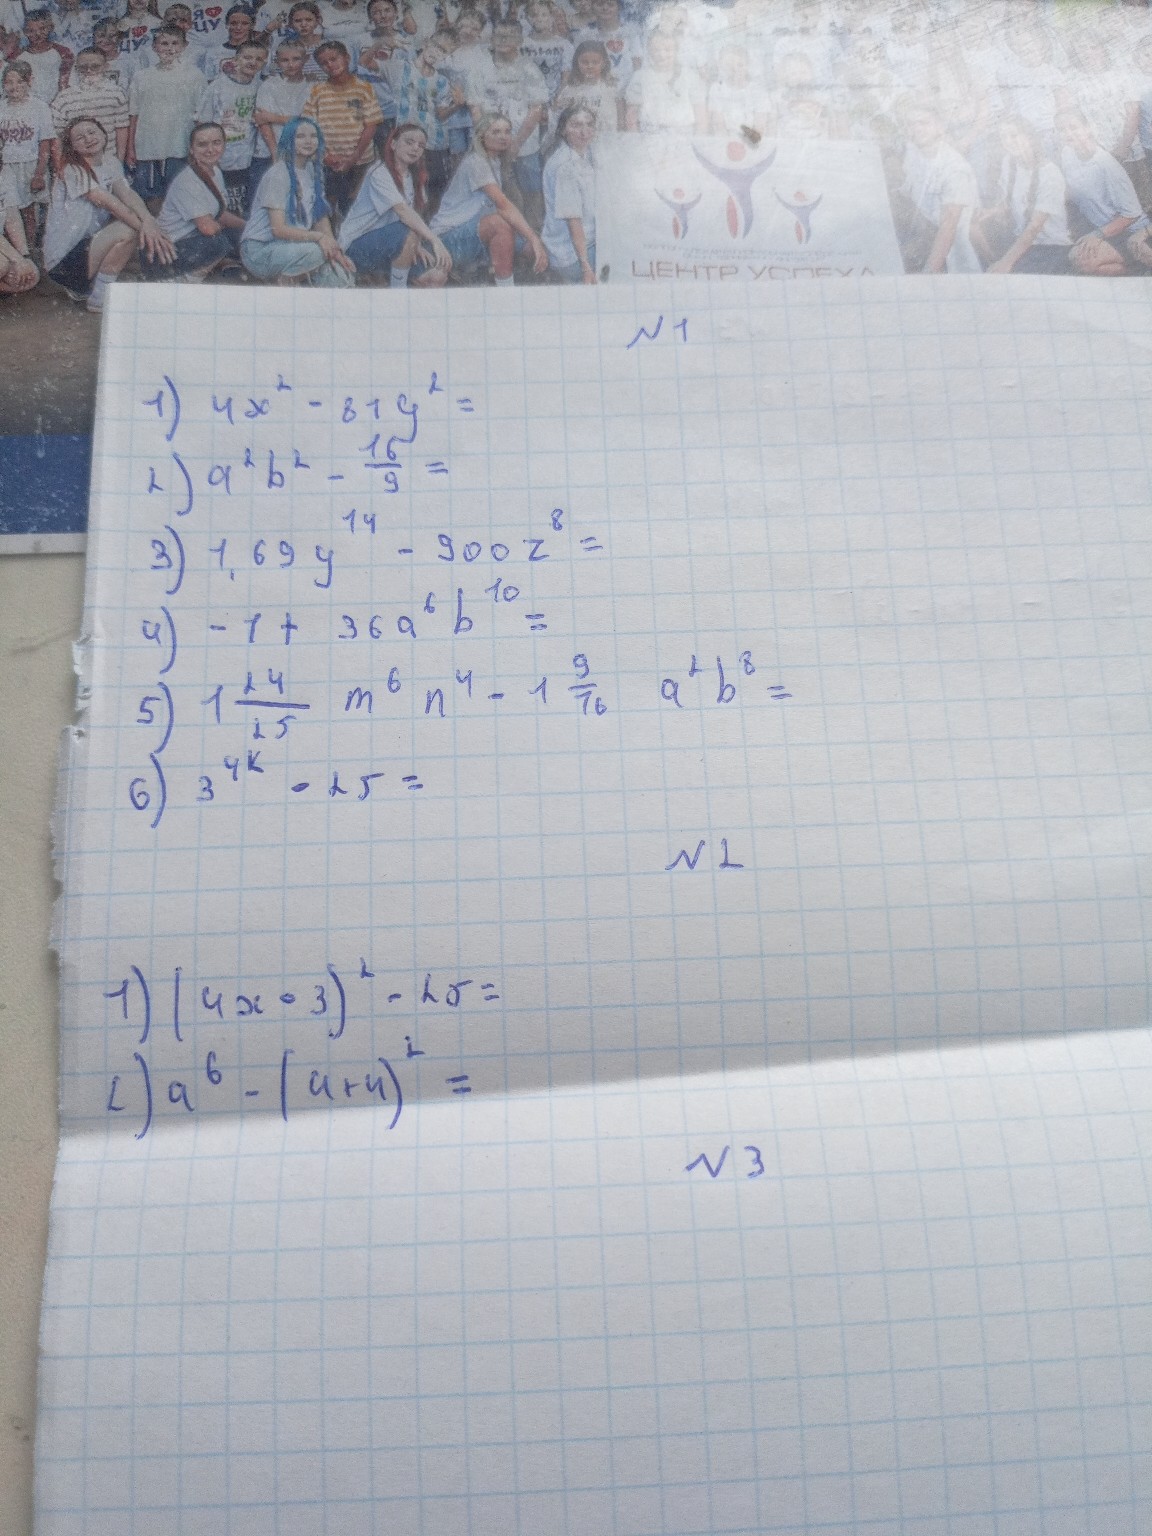 ЦЕНТР УСПЕХА
№1
1) 4x² - 81y² =
2) a²b² - 16/9 =
3) 1,69y¹⁴ - 900z⁸ =
4) -1 + 36a⁶b¹⁰ =
5) 1 24/25 m⁶n⁴ - 1 9/16 a²b⁸ =
6) 3⁴ᵏ - 25 =
№2
1) (4x - 3)² - 25 =
2) a⁶ - (4+4)² =
№3